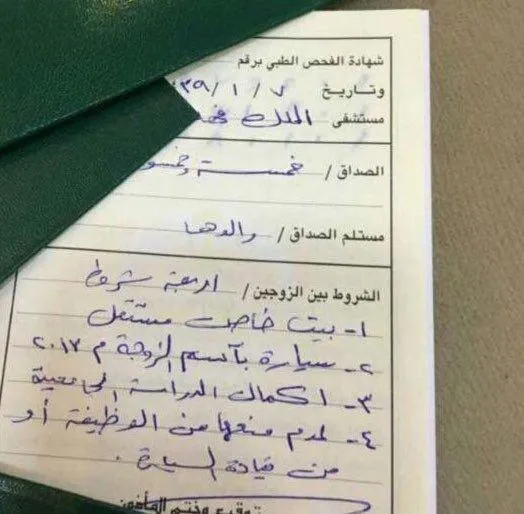 شهادة الفحص الطبي برقم
وتاريخ ٧ / ١ / ٣٩
مستشفى الملك فهد
الصداق / خمسة وخمسو
مستلم الصداق / والدها
الشروط بين الزوجين / اربعة شروط
١- بيت خاص مستقل
٢- سيارة بآسم الزوجة م ٢٠١٣
٣- اكمال الدراسة الجامعية
٤- عدم منعها من الوظيفة أو
من قيادة السيارة .
توقيع وختم المأذون